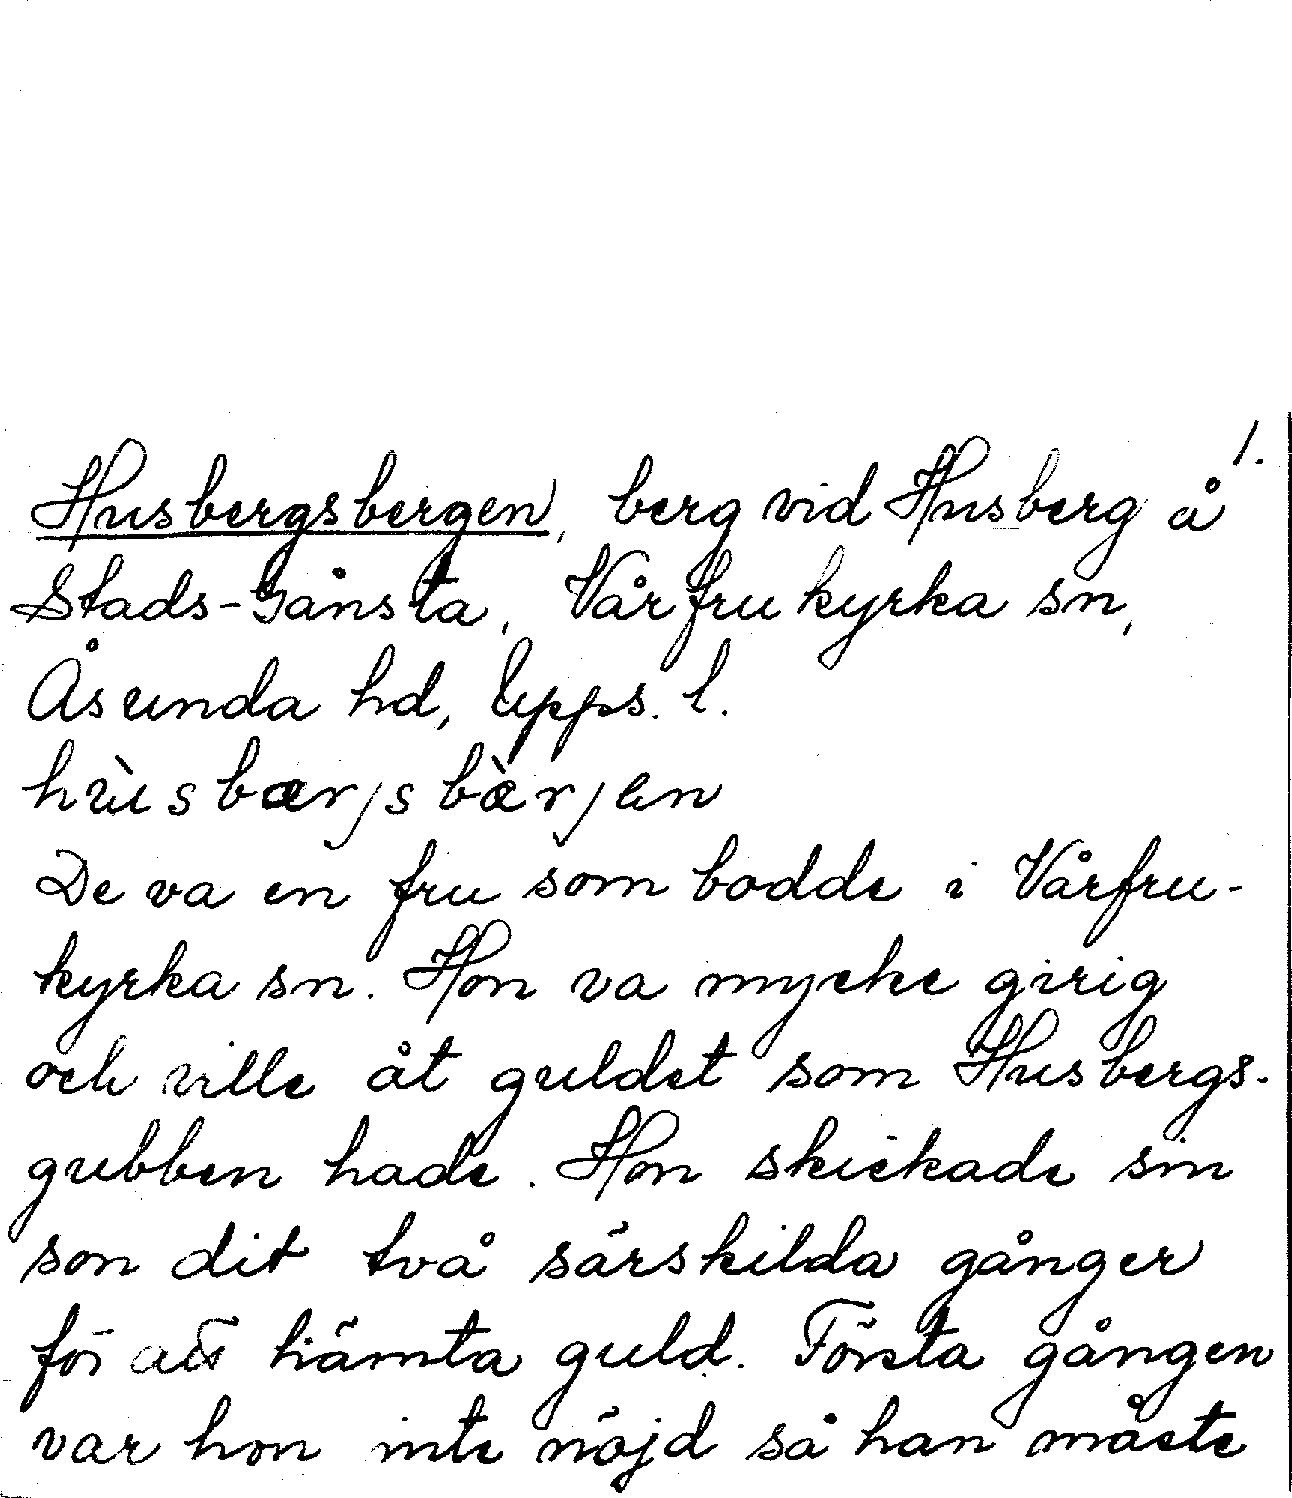 1.
Husbergsbergen, berg vid Husberg å
Stads-Gånsta, Vårfrukyrka sn,
Åsunda hd, Upps. l.
hùsbærjsbæ̀rjen
De va en fru som bodde i Vårfru-
kyrka sn. Hon va mycke girig
och ville åt guldet som Husbergs-
gubben hade. Hon skickade sin
son dit två särskilda gånger
för att hämta guld. Första gången
var hon inte nöjd så han måste